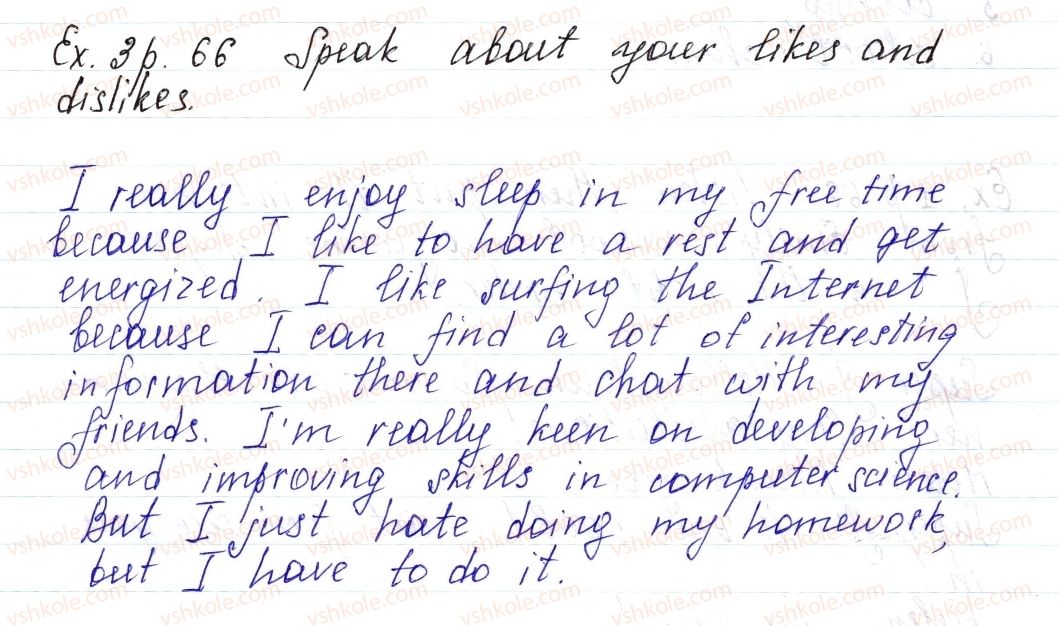 Ex. 3 p. 66 Speak about your likes and
dislikes.
I really enjoy sleep in my free time
because I like to have a rest and get
energized. I like surfing the Internet
because I can find a lot of interesting
information there and chat with my
friends. I'm really keen on developing
and improving skills in computer science.
But I just hate doing my homework,
but I have to do it.